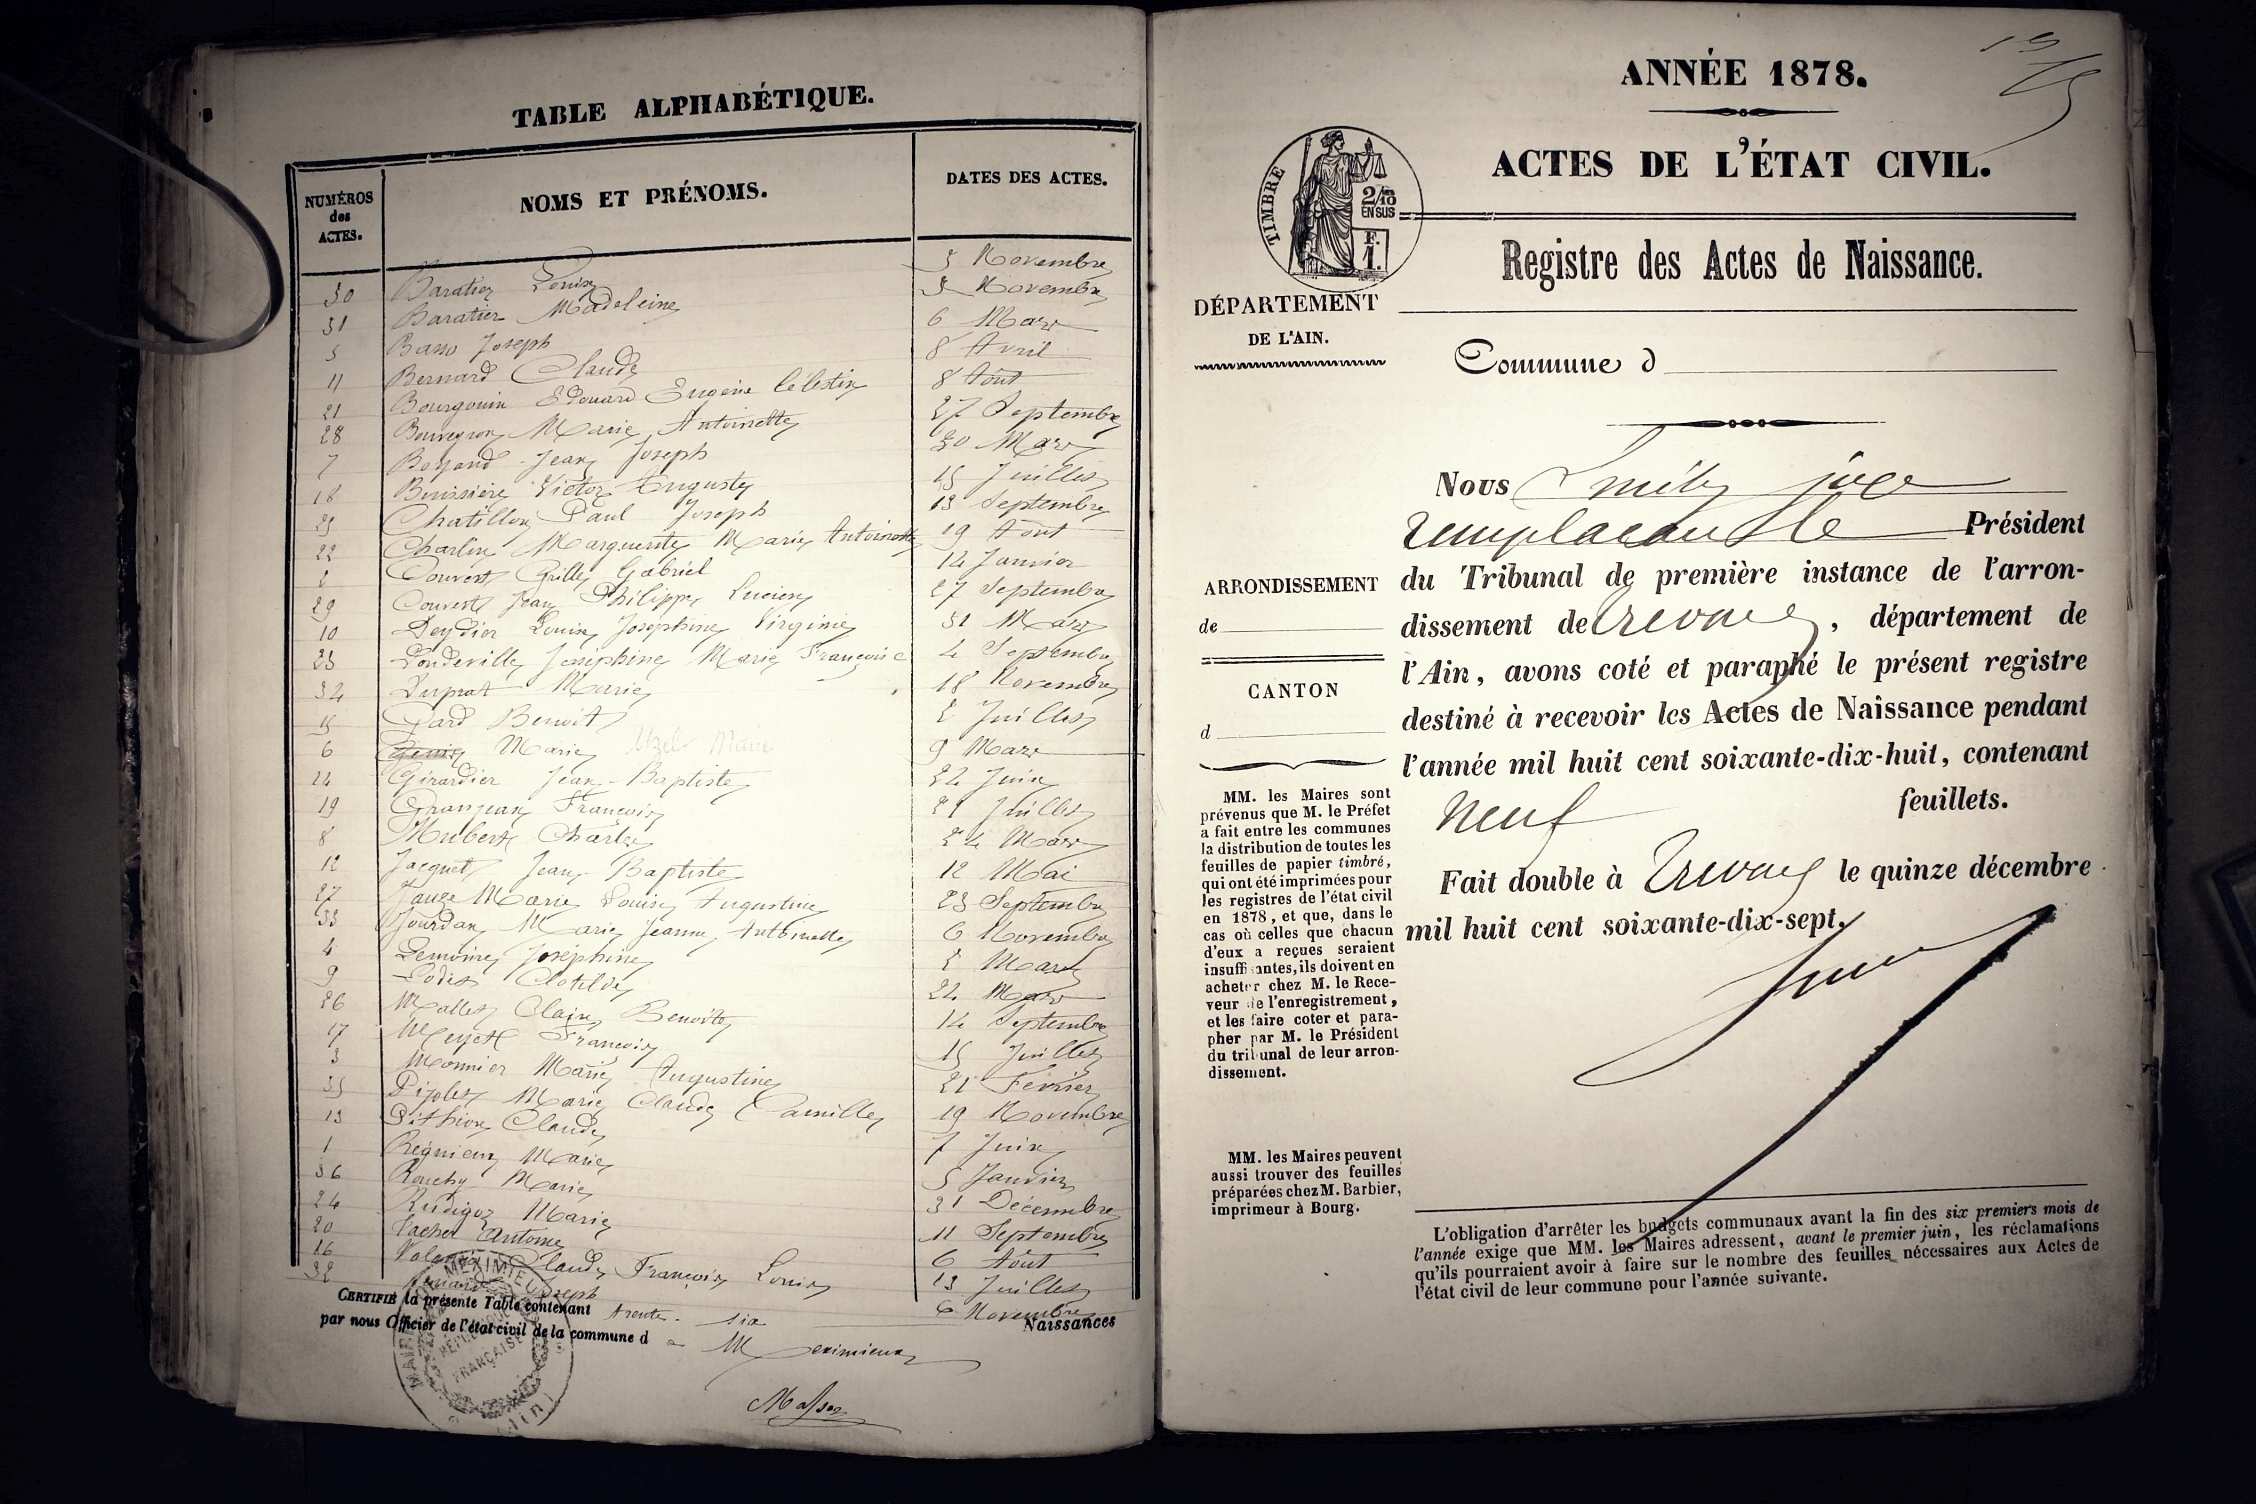 TABLE ALPHABÉTIQUE.
NUMÉROS des ACTES. NOMS ET PRÉNOMS. DATES DES ACTES.
30 Baratier Louise 5 Novembre
31 Baratier Madeleine 5 Novembre
5 Basso Joseph 6 Mars
11 Bernard Claude 8 Avril
21 Bourgouin Edouard Eugène Célestin 8 Août
28 Marie Antoinette 27 Septembre
7 Boyand Jean Joseph 20 Mars
18 Bouissière Victor Auguste 15 Juillet
25 Chatillon Paul Joseph 13 Septembre
22 Charlin Marguerite Marie Antoinette 19 Août
2 Couvert Gabriel 14 Janvier
29 Couvert Jean Philippe Lucien 27 Septembre
10 Deydier Louise Joséphine Virginie 31 Mars
23 Joséphine Marie Françoise 4 Septembre
34 Duprat Marie 18 Novembre
15 Gard Benoit 2 Juillet
6 Marie 9 Mars
14 Girardier Jean-Baptiste 22 Juin
19 Granjean François 21 Juillet
8 Hubert Charles 24 Mars
12 Jacquet Jean-Baptiste 12 Mai
27 Marie Louise Augustine 23 Septembre
33 Jourdan Marie Jeanne Antoinette 6 Novembre
4 Lemoine Joséphine 2 Mars
9 Clotilde 24 Mars
26 Mallet Claire Benoite 14 Septembre
17 François 15 Juillet
3 Monnier Marie Augustine 21 Février
35 Marie Claude Camille 19 Novembre
13 Pithion Claude 7 Juin
1 Régnieux Marie 5 Janvier
36 Rouchy Marie 31 Décembre
24 Rudigoz Marie 11 Septembre
20 Vacher Antoine 6 Août
16 Claude François Louis 13 Juillet
32 Joseph 6 Novembre
CERTIFIÉ la présente Table contenant trente-six Naissances
par nous Officier de l'état civil de la commune d e Meximieux
MAIRIE MEXIMIEUX
RÉPUBLIQUE FRANÇAISE
(Ain)
ANNÉE 1878.
ACTES DE L'ÉTAT CIVIL.
TIMBRE
2/10 EN SUS
F. 1.
Registre des Actes de Naissance.
DÉPARTEMENT
DE L'AIN.
Commune d
Nous
remplaçant le Président
du Tribunal de première instance de l'arron-
dissement de Trévoux, département de
l'Ain, avons coté et paraphé le présent registre
destiné à recevoir les Actes de Naissance pendant
l'année mil huit cent soixante-dix-huit, contenant
neuf feuillets.
Fait double à Trévoux le quinze décembre
mil huit cent soixante-dix-sept.
ARRONDISSEMENT
de
CANTON
d
MM. les Maires sont
prévenus que M. le Préfet
a fait entre les communes
la distribution de toutes les
feuilles de papier timbré,
qui ont été imprimées pour
les registres de l'état civil
en 1878, et que, dans le
cas où celles que chacun
d'eux a reçues seraient
insuffisantes, ils doivent en
acheter chez M. le Rece-
veur de l'enregistrement,
et les faire coter et para-
pher par M. le Président
du tribunal de leur arron-
dissement.
MM. les Maires peuvent
aussi trouver des feuilles
préparées chez M. Barbier,
imprimeur à Bourg.
L'obligation d'arrêter les budgets communaux avant la fin des six premiers mois de
l'année exige que MM. les Maires adressent, avant le premier juin, les réclamations
qu'ils pourraient avoir à faire sur le nombre des feuilles nécessaires aux Actes de
l'état civil de leur commune pour l'année suivante.